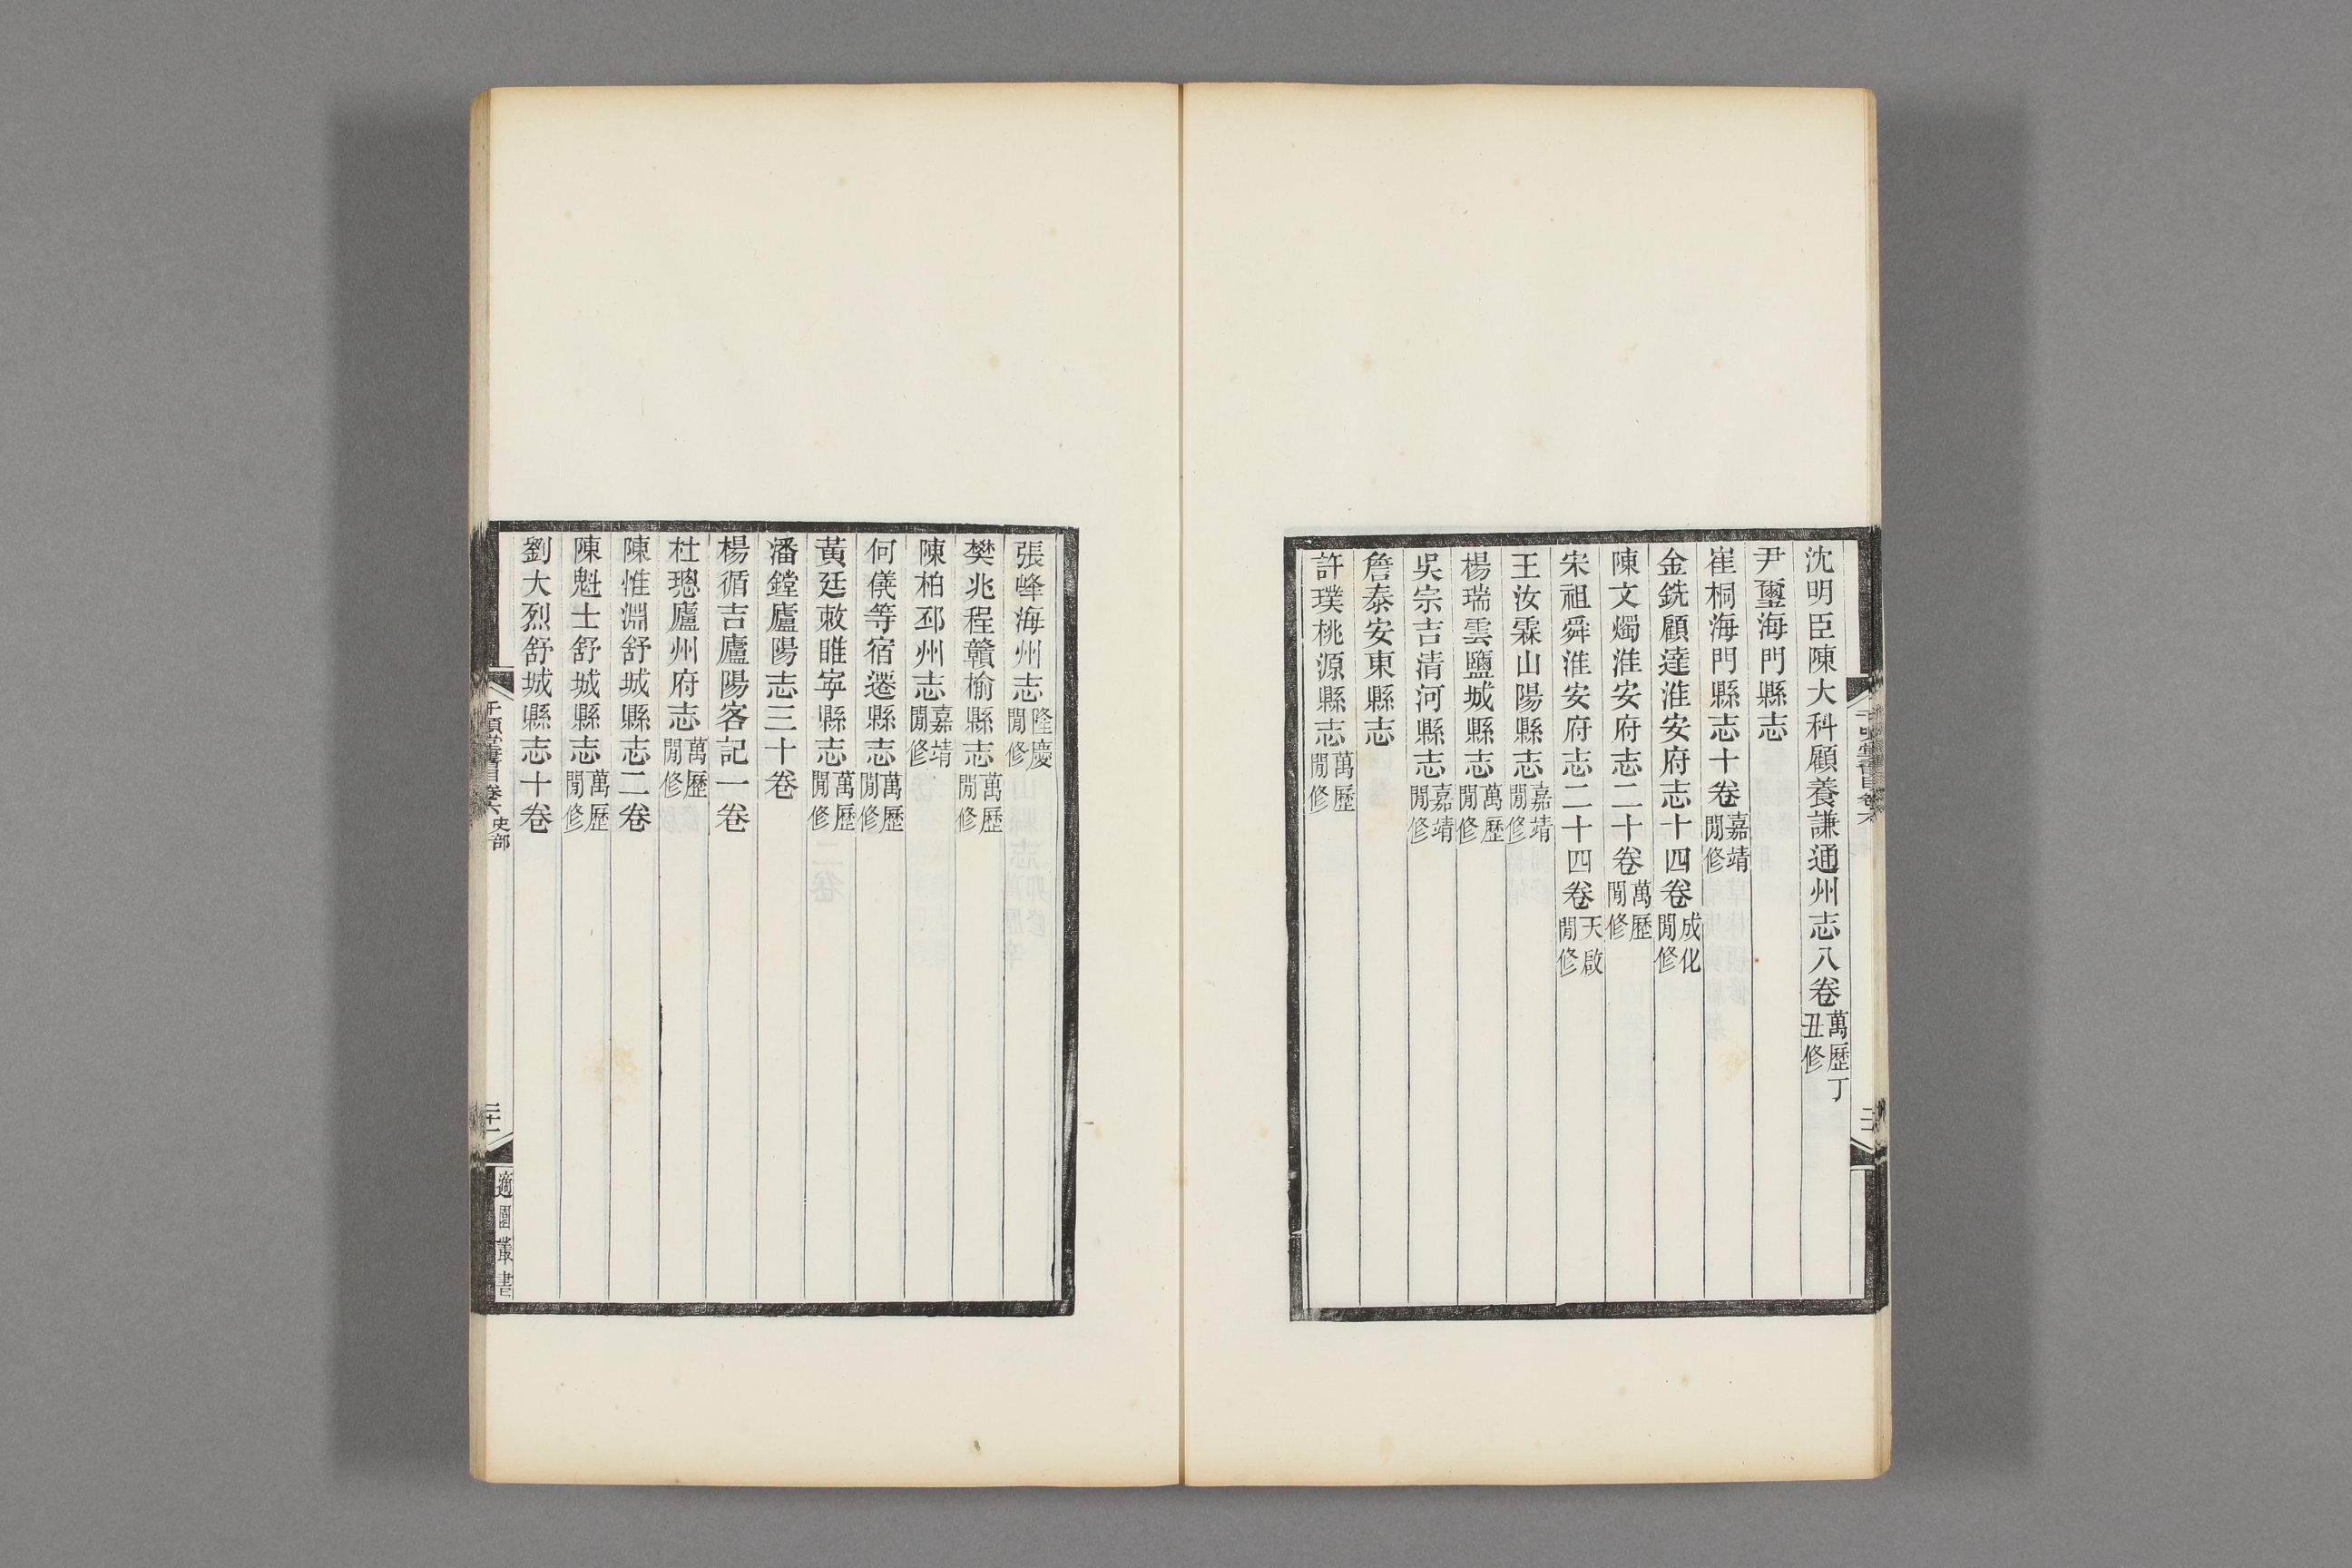 沈明臣陳大科顧養謙通州志八卷萬歷丁丑修
尹璽海門縣志
崔桐海門縣志十卷嘉靖閒修
金銑顧達淮安府志十四卷成化閒修
陳文燭淮安府志二十卷萬歷閒修
宋祖舜淮安府志二十四卷天啟閒修
王汝霖山陽縣志嘉靖閒修
楊瑞雲鹽城縣志萬歷閒修
吳宗吉清河縣志嘉靖閒修
詹泰安東縣志
許璞桃源縣志萬歷閒修
張峰海州志隆慶閒修
樊兆程贛榆縣志萬歷閒修
陳柏邳州志嘉靖閒修
何儀等宿遷縣志萬歷閒修
黃廷敕睢寧縣志萬歷閒修
潘鏜廬陽志三十卷
楊循吉廬陽客記一卷
杜璁廬州府志萬歷閒修
陳惟淵舒城縣志二卷
陳魁士舒城縣志萬歷閒修
劉大烈舒城縣志十卷
千頃堂書目卷六 史部
二十一
適園叢書